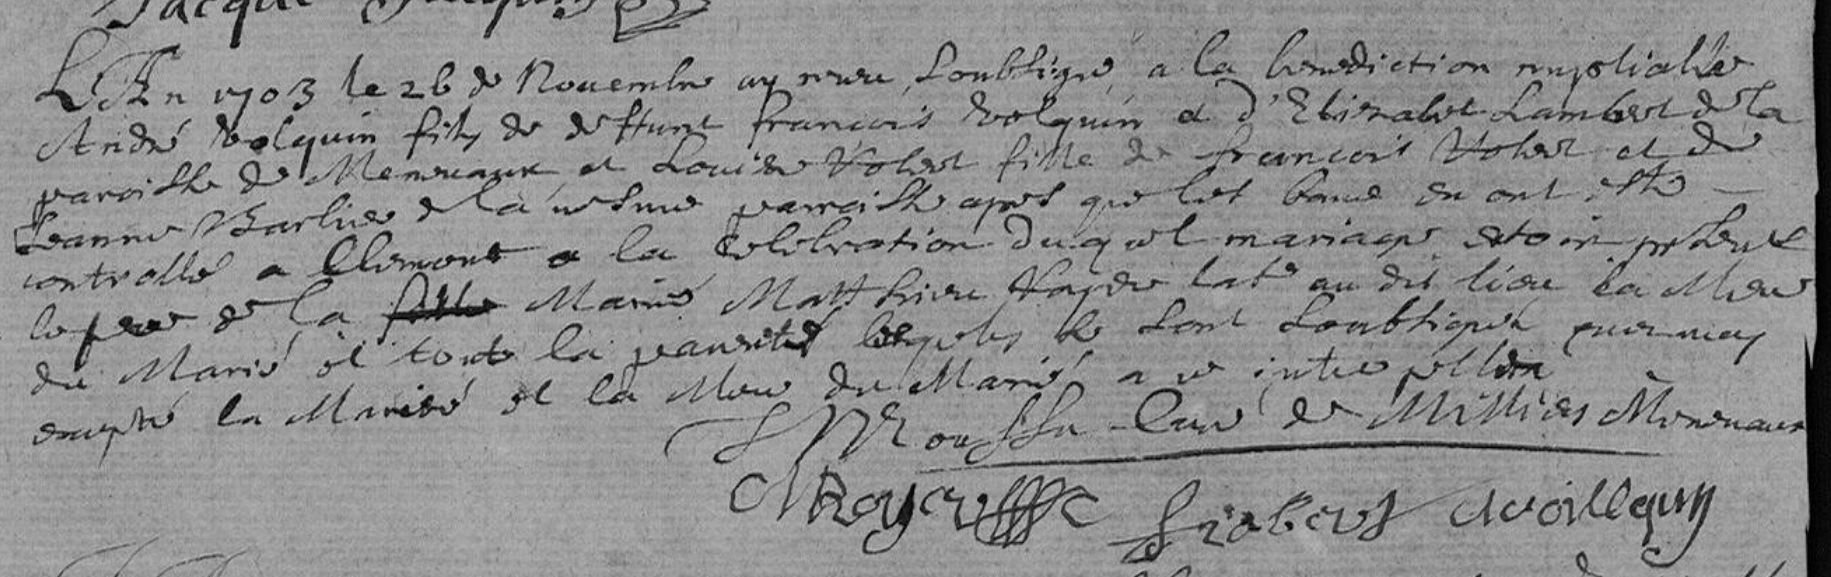 Jacque
L'An 1703 le 26 de Novembre ay receu soubsigné a la benediction nuptialle
André Volquin fils de deffunt francois Volquin et d'Elizabet Lambert de la
paroisse de Menneaux et Louise Robert fille de francois Robert et de
Jeanne Barlier de la mesme parroisse apres que les bans en ont esté
controllé a Clemont a la Celebration duquel mariage etoin present
le pere de la fille Marié Matthieu Royer lab^r au dit lieu la Mere
du Marié et toute la parenté lesquels se sont soubsignés avec moy
excepté la Mariée et la Mere du Marié a ce interpellés
Mousseu Curé de Millieres Menneaux
MRoyer frobert Avoillequin